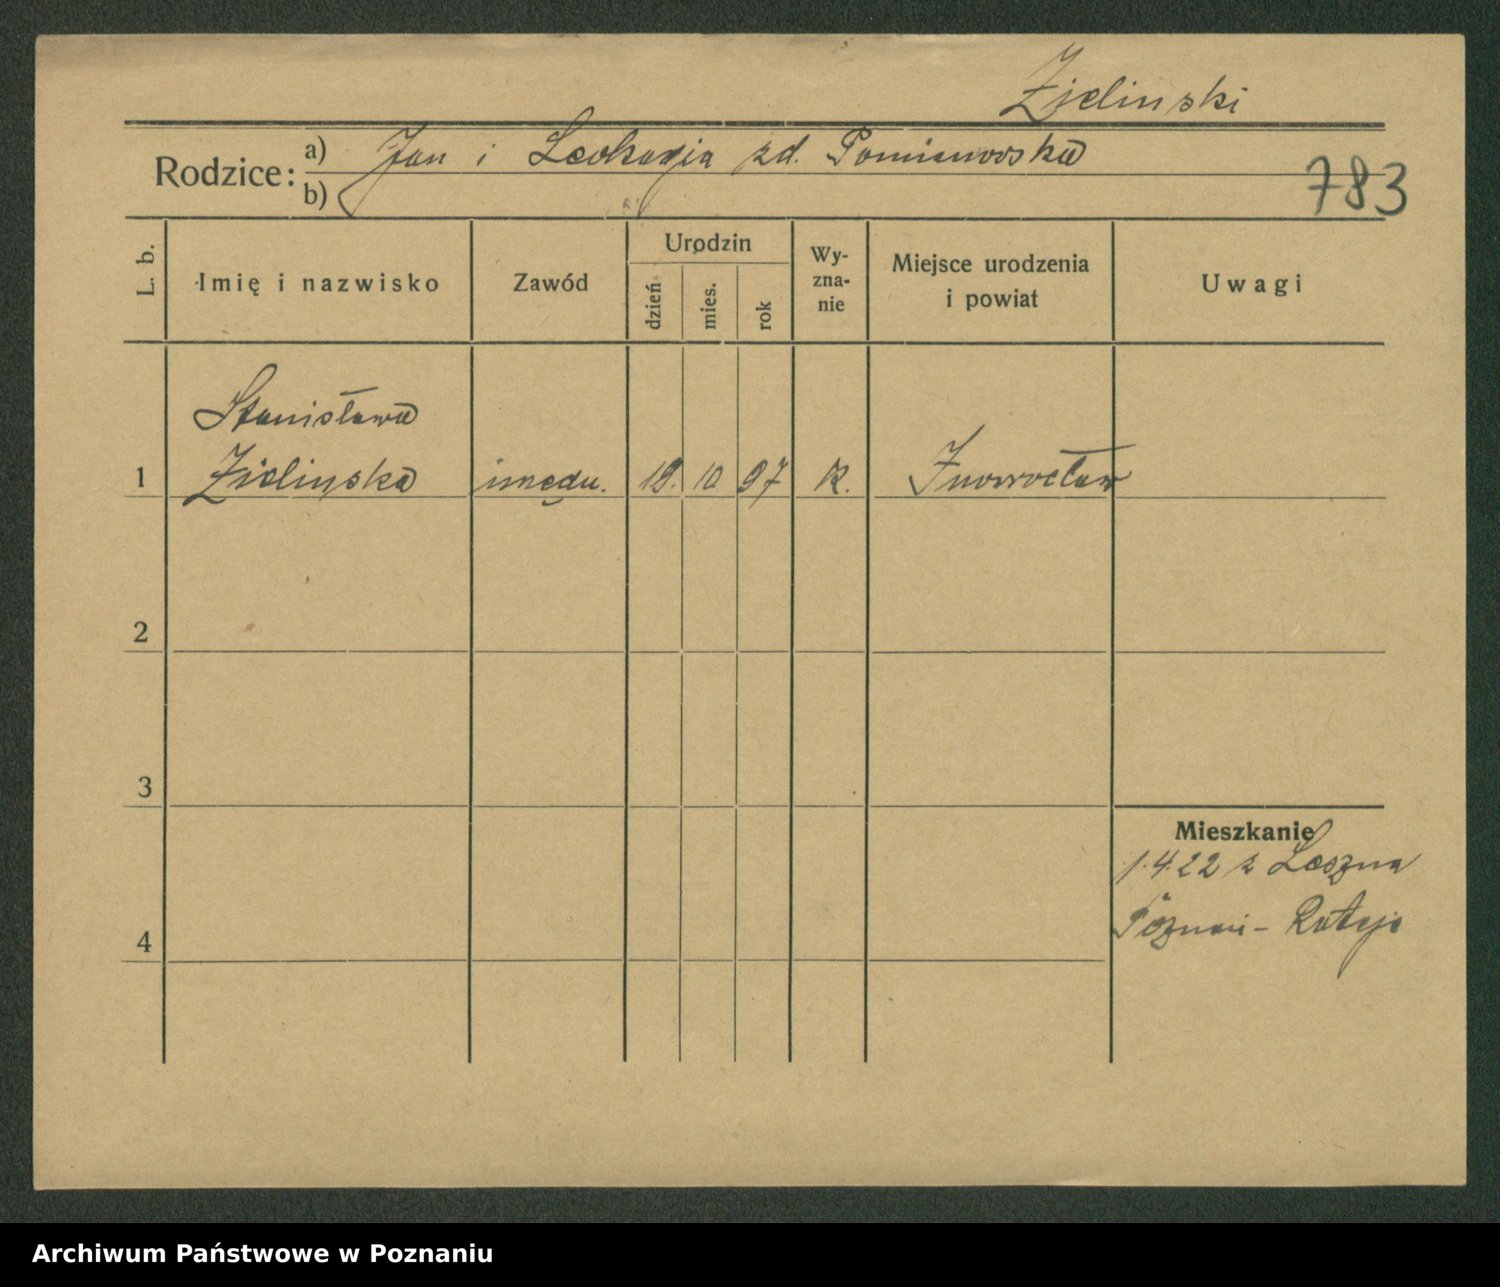 Zielinski
Rodzice: a) Jan i Leokadja zd. Pomianowska
b)
783
L. b.
Imię i nazwisko
Zawód
Urodzin
dzień
mies.
rok
Wy-
zna-
nie
Miejsce urodzenia
i powiat
Uwagi
Stanisława
1 Zielinska 19. 10 97 k. Inowrocław
2
3
Mieszkanie
1.4.22 z Leszna
4 Poznań - Rataje
Archiwum Państwowe w Poznaniu